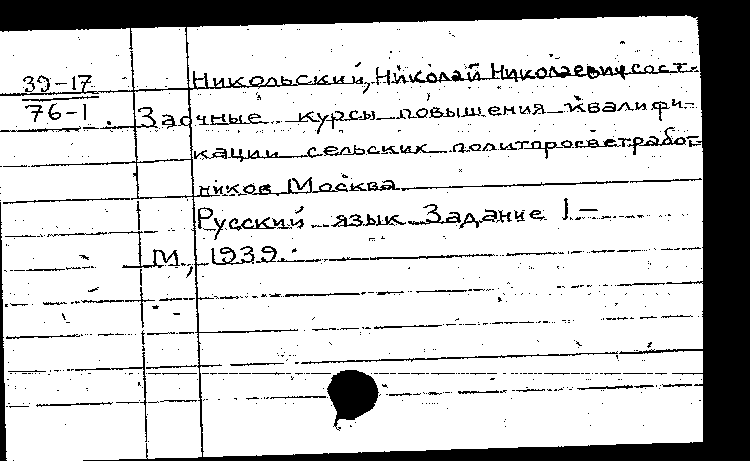 39-17
76-1
Никольский, Николай Николаевич сост.
Заочные курсы повышения квалифи-
кации сельских политпросветработ-
ников. Москва.
Русский язык. Задание 1-
М, 1939.